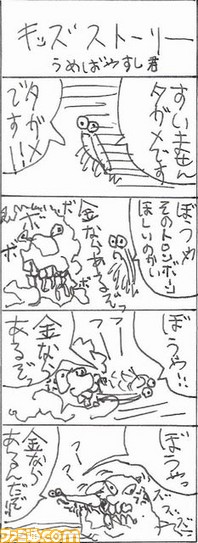 キッズストーリー
うめばやすし君
すいません
タガメです
タガメ
です!!
ぼうや
そのトロンボーン
ほしいのかい
金ならあるぞっ
ボ
ボ
ボ
ぼうや…
フー
フー
金なら
あるぞ
ぼうやっ
ズズズ…
フー
フー
金なら
あるんだぞ
ファミ通.com